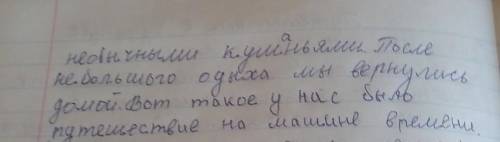 необычными кушаньями. После
небольшого одыха мы вернулись
домой. Вот такое у нас было
путешествие на машине времени.